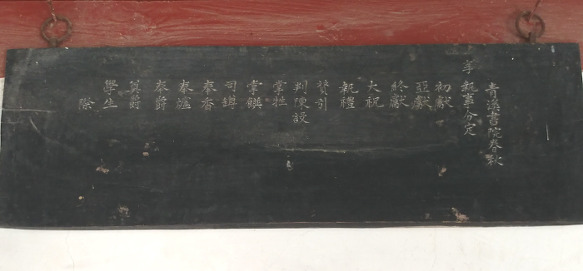 青溪書院春秋
享執事分定
初獻
亞獻
終獻
大祝
執禮
贊引
判陳設
掌牲
掌饌
司罇
奉香
奉爐
奉爵
奠爵
學生
除